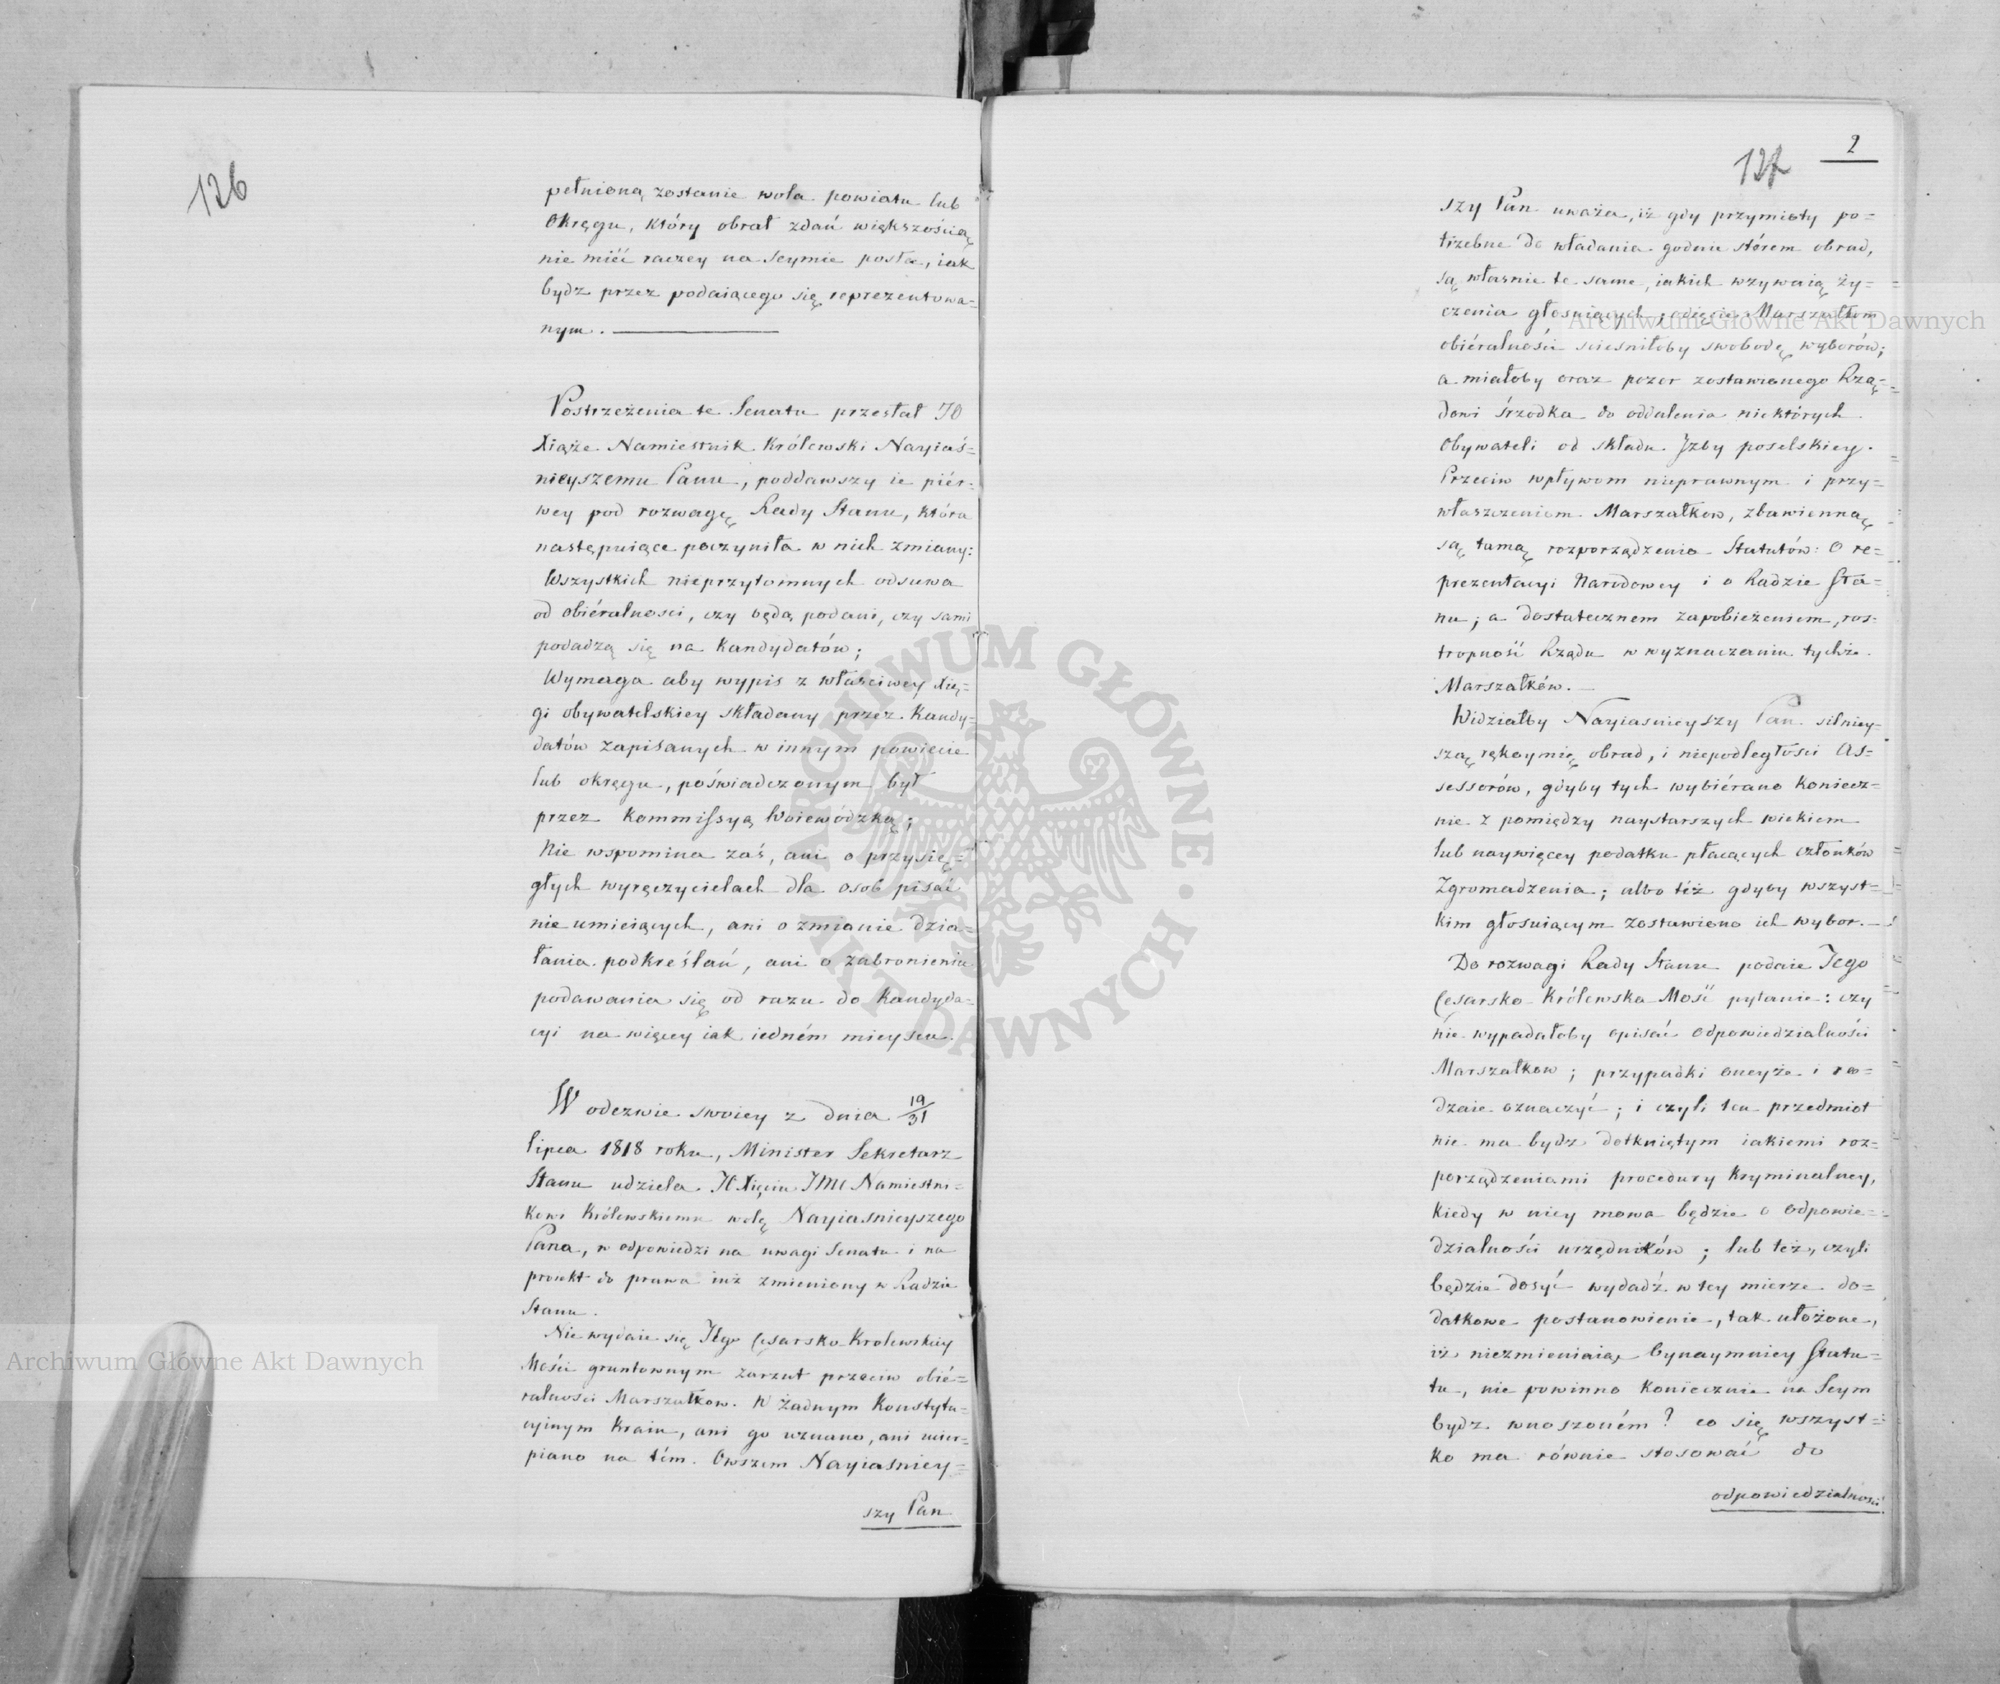 126
pełnioną zostanie wola powiatu lub
Okręgu, który obrał zdań większością
nie mieć raczey na Seymie posła, iak
bydz przez podaiącego się reprezentowa-
nym.
Postrzeżenia te Senatu przesłał JO
Xiąże Namiestnik Królewski Nayiaś-
nieyszemu Panu, poddawszy ie piér-
wey pod rozwagę Rady Stanu, która
następuiące poczyniła w nich zmiany:
Wszystkich nieprzytomnych odsuwa
od obiéralnosci, czy będą podani, czy sami
podadzą się na Kandydatów;
Wymaga aby wypis z właściwey Xię-
gi obywatelskiey składany przez Kandy-
datów zapisanych w innym powiecie
lub okręgu, poświadczonym był
przez Kommissyą Woiewódzką;
Nie wspomina zaś, ani o przysię-
głych wyręczycielach dla osob pisać
nie umieiących, ani o zmianie dzia-
łania podkreślań, ani o zabronieniu
podawania się od razu do Kandyda-
cyi na więcey iak iedném mieyscu.
W odezwie swoiey z dnia 19/31
lipca 1818 roku, Minister Sekretarz
Stanu udziela JO Xięciu JMC Namiestni-
kowi Królewskiemu wolę Nayiasnieyszego
Pana, w odpowiedzi na uwagi Senatu i na
proiekt do prawa iuż zmieniony w Radzie
Stanu.
Nie wydaie się Jego Cesarsko Krolewskiey
Mości gruntownym zarzut przeciw obié-
ralności Marszałkow. W żadnym Konstytu-
cyinym Kraiu, ani go uznano, ani uwier-
piano na tém. Owszem Nayiasniey-
szy Pan
127
2
szy Pan uważa, iż gdy przymioty po-
trzebne do władania godnie stérem obrad,
są własnie te same, iakich wzywaią ży-
czenia głosuiących; odięcie Marszałkom
obiéralności sciesniłoby swobodę wyborów;
a miałoby oraz pozor zostawionego Rzą-
dowi śrzodka do oddalenia niektórych
Obywateli od składu Jzby poselskiey.
Przeciw wpływom nieprawnym i przy-
właszczeniom Marszałkow, zbawienną
są tamą rozporządzenia Statutów: O re-
prezentacyi Narodowey i o Radzie Sta-
nu; a dostatecznem zapobieżeniem, ros-
tropność Rządu w wyznaczaniu tychże
Marszałków.
Widziałby Nayiasnieyszy Pan silniey-
szą rękoymię obrad, i niepodległosci As-
sessorów, gdyby tych wybiérano Koniecz-
nie z pomiędzy naystarszych wiekiem
lub naywięcey podatku płacących członków
Zgromadzenia; albo téż gdyby wszyst-
kim głosuiącym zostawiono ich wybor.
Do rozwagi Rady Stanu podaie Jego
Cesarsko Królewska Mość pytanie: czy
nie wypadałoby opisać odpowiedzialności
Marszałkow; przypadki oneyże i ro-
dzaie oznaczyć; i czyli ten przedmiot
nie ma bydz dotkniętym iakiemi roz-
porządzeniami procedury Kryminalney,
Kiedy w niey mowa będzie o odpowie-
dzialności urzędników; lub téż, czyli
będzie dosyć wydadź w tey mierze do-
datkowe postanowienie, tak ułożone,
iż niezmieniaią bynaymniey Statu-
tu, nie powinno koniecznie na Seym
bydz wnoszoném? co się wszyst-
ko ma równie stosować do
odpowiedzialności
Archiwum Główne Akt Dawnych
Archiwum Główne Akt Dawnych
ARCHIWUM GŁÓWNE AKT DAWNYCH